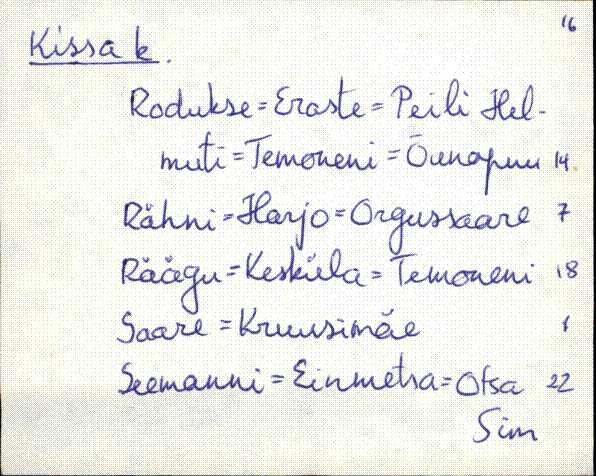 16
Kissa k.
Rodukse = Eraste = Peili Hel-
muti = Temoneni = Õunapuu 14.
Rähni = Harjo = Orgussaare 7
Räägu = Kesküla = Temoneni 18
Saare = Kruusimäe 1
Seemanni = Einmetsa = Otsa 22
Sim